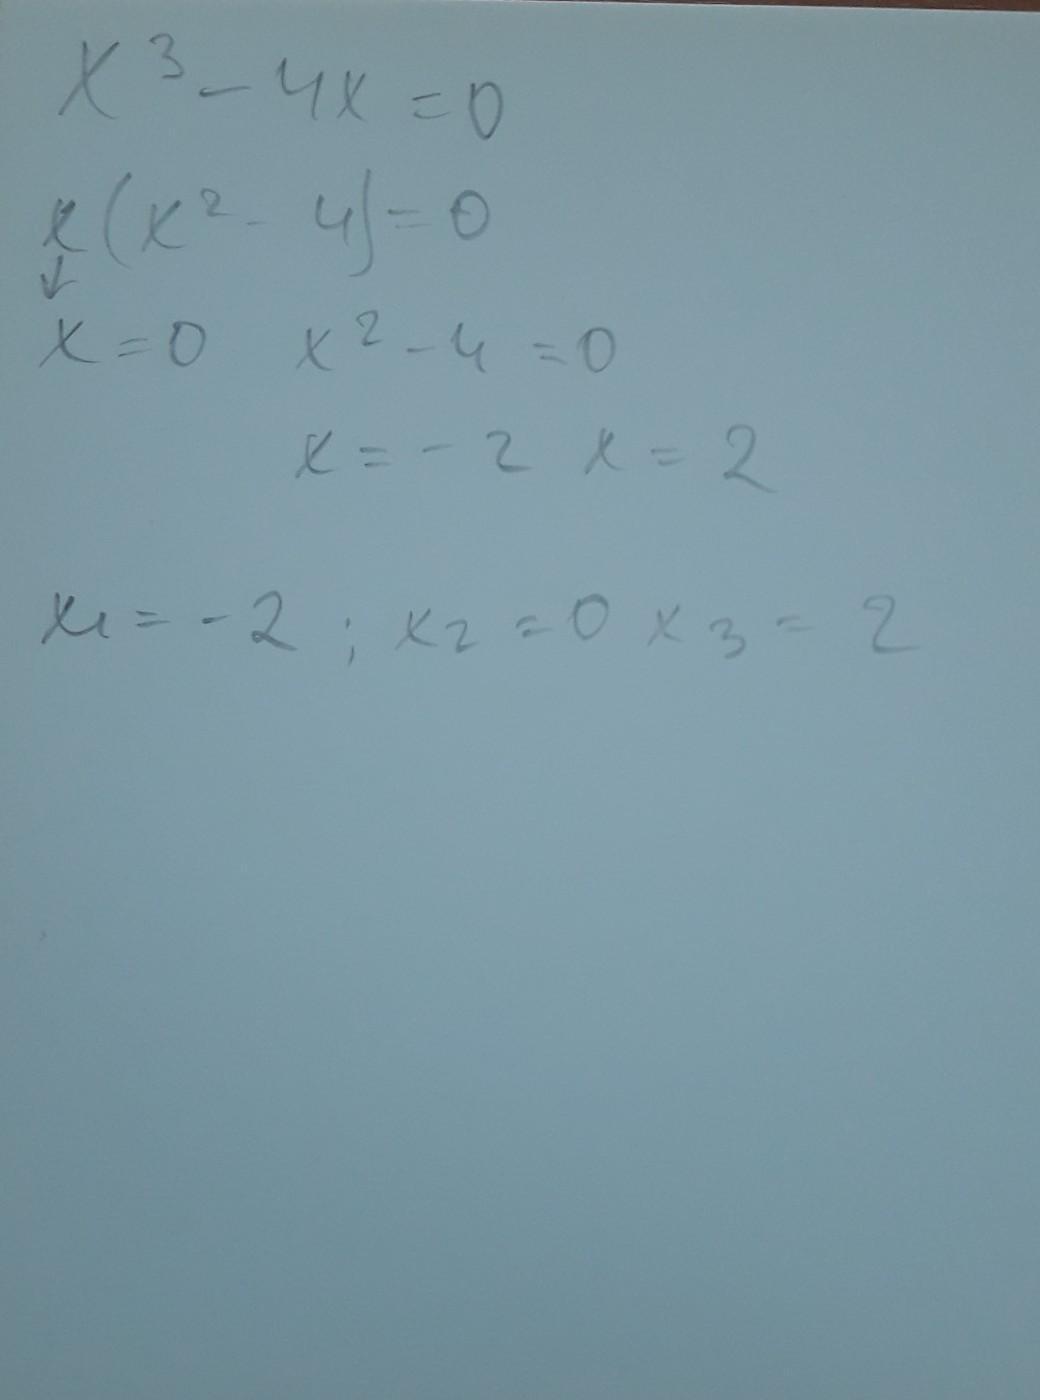 x³ - 4x = 0
x(x² - 4) = 0
↓
x = 0 x² - 4 = 0
x = - 2 x = 2
x₁ = - 2 ; x₂ = 0 x₃ = 2